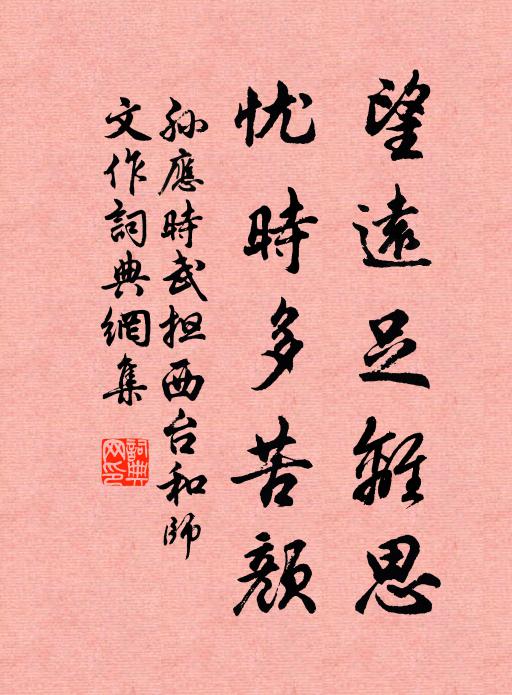 望遠足離思
忧時多苦顏
孙應時武担西台和師
文作詞典網集
詞典网印